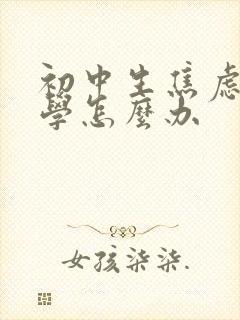 初中生焦虑
學怎麽办
女孩柒柒.